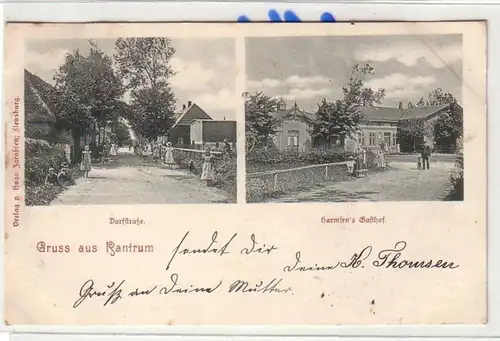 Verlag v. Hugo Jacobsen, Flensburg.
Dorfstraße.
Harmsen's Gasthof.
Gruss aus Rantrum
sendet Dir
Deine H. Thomsen
Gruß an Deine Mutter